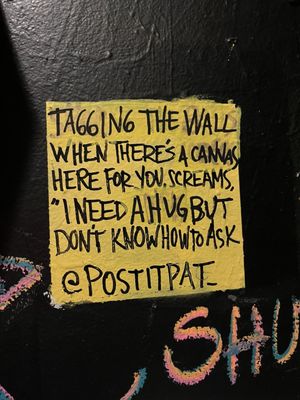 TAGGING THE WALL
WHEN THERE'S A CANVAS
HERE FOR YOU, SCREAMS,
"I NEED A HUG BUT
DON'T KNOW HOW TO ASK
@POSTITPAT_
SHU